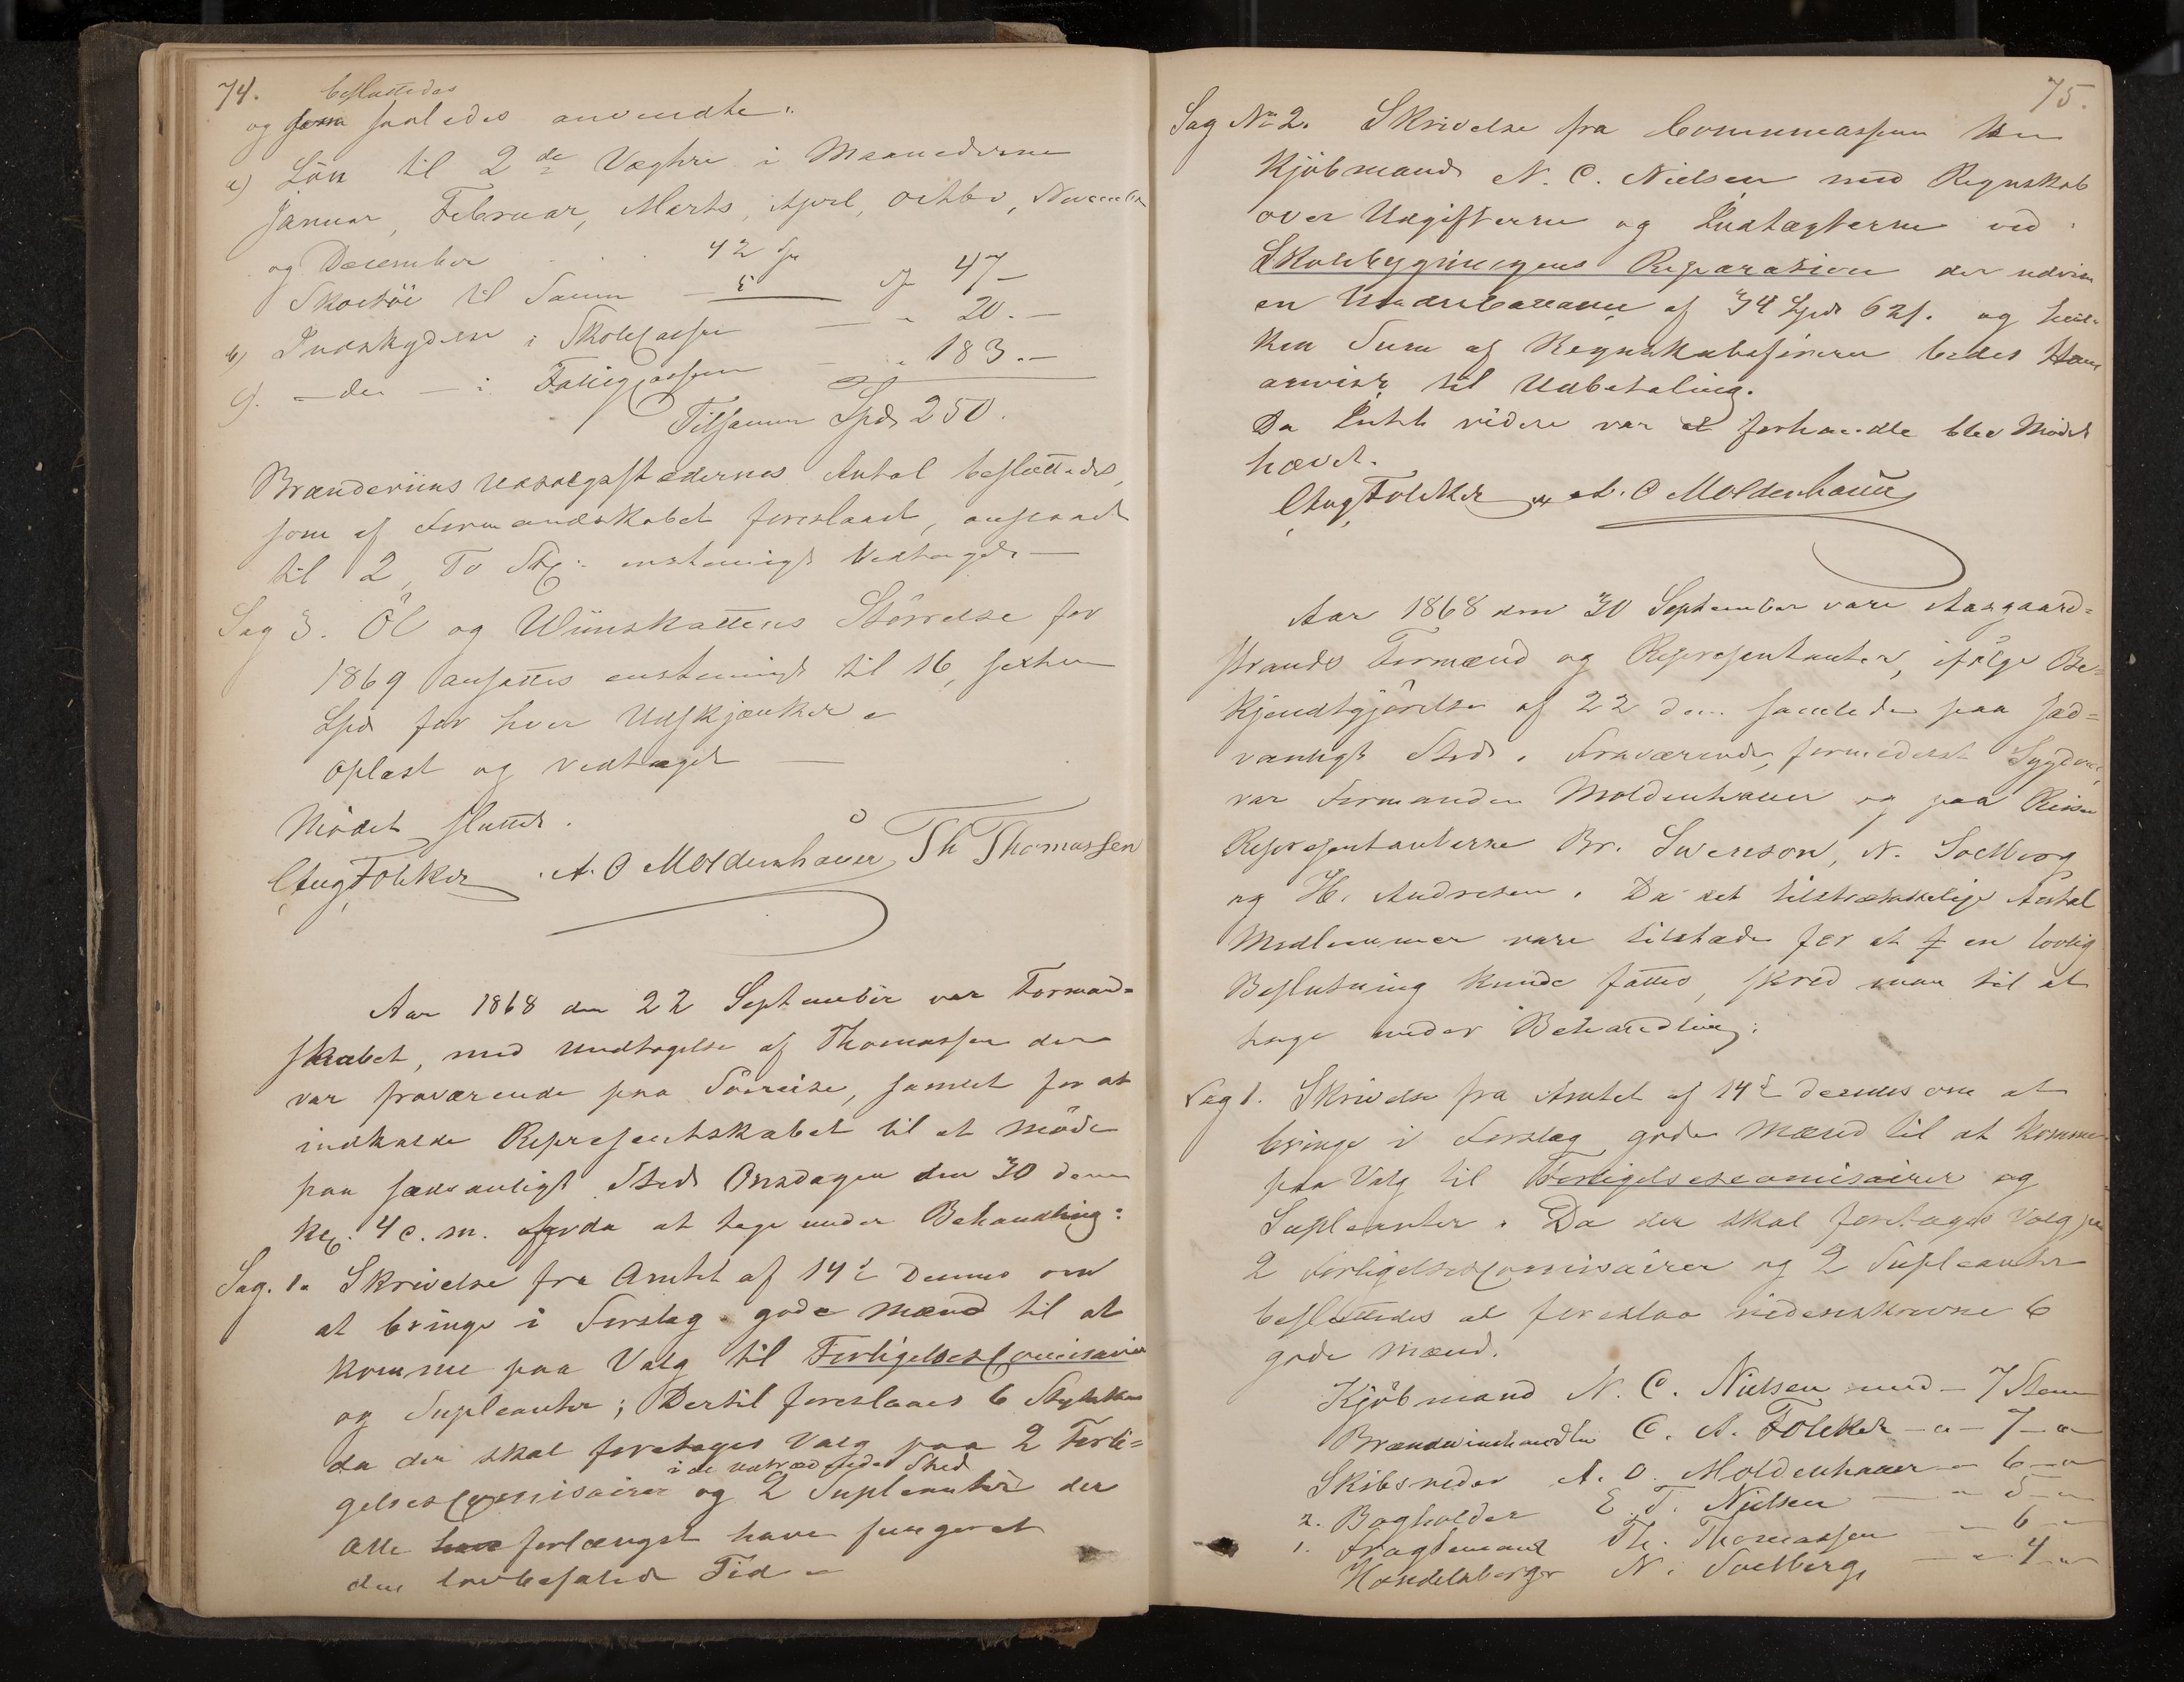 74.
besluttedes
og som saaledes anvendte:
a) Lön til 2de Vægtere i Maanederne
Januar, Februar, Marts, April, Octbr, November
og December 42 Sp
Skoetöi til Samme — 5 Sp 47 —
b) Indskydelse i Skolecassen — „ 20. —
c). — den — i Fattigcassen — „ 183. —
Tilsammen Spd 250.
Brændeviins Udsalgsstædernes Antal besluttedes,
som af Formandskabet foreslaaet, ansaaet
til 2, To Stk: enstemigt Vedtaget —
Sag 3. Öl og Viinskattens Störrelse for
1869 ansattes enstemigt til 16, sexten
Spd for hver Udskjænker
Oplæst og vedtaget —
Mödet sluttet.
C Aug Foleker A. O Moldenhauer Th Thomassen
Aar 1868 den 22 September var Formand=
skabet, med Undtagelse af Thomassen der
var fraværende paa Söreise, samlet for at
indkalde Representskabet til et möde
paa sædvanligt Sted Onsdagen den 30 dennes
Kl. 4 e. m. for da at tage under Behandling:
Sag. 1. Skrivelse fra Amtet af 14de Dennes om
at bringe i Forslag gode Mænd til at
komme paa Valg til Forligelsescomisairer
og Supleanter; Dertil foreslaaes 6 Stykker
da der skal foretages Valg paa 2 Forli=
i de udtrædende Sted
gelsescomisairer og 2 Supleanter der
Alle have forlængst have fungeret
den lovbefalede Tid
75.
Sag No 2. Skrivelse fra Communcassereren Herr
Kjöbmand N. C. Nielsen med Regnskab
over Udgifterne og Indtægterne ved
Skolebygningens Reparation der udviser
en Underballance af 34 Spd 62 s. og hvil-
ken Sum af Regnskabsföreren bedes Ham
anvist til Udbetaling.
Da Intet videre var at forhandle blev Mödet
hævet.
C Aug Foleker A. O Moldenhauer
Aar 1868 den 30 September vare Aasgaard=
strands Formænd og Representanter, ifölge Be=
kjendtgjörelse af 22 den samlede paa sæd=
vanligt Sted. Fraværende, formedelst Sygdom,
var Formanden Moldenhauer og paa Reise
Representanterne Br. Svenson, N. Soelberg
og H. Andresen. Da det tilstrækkelige Antal
Medlemmer vare tilstæde for at f en lovlig
Beslutning kunde fattes, skred man til at
tage under Behandling:
Sag 1. Skrivelse fra Amtet af 14de dennes om at
bringe i Forslag gode Mænd til at komme
paa Valg til Forligelsescomisairer og
Supleanter. Da der skal foretages Valg paa
2 Forligelsescomisairer og 2 Supleanter
besluttedes at foreslaa nedenskrevne 6
gode Mænd.
Kjöbmand N. C. Nielsen med — 7 Stem
Brændeviinshandler C. A. Foleker — „ — 7 — „
Skibsreder A. O. Moldenhauer — „ 6 — „
2. Bogholder E. T. Nielsen — „ 5 — „
1. Fragtemand Th. Thomassen — „ 6 — „
Handelsborger N. Soelberg — „ 4 — „